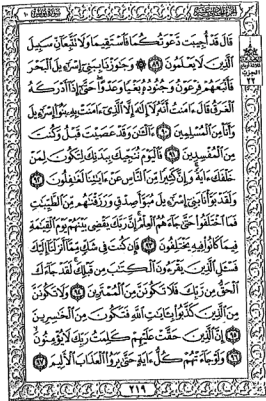 قَالَ قَدْ أُجِيبَت دَّعْوَتُكُمَا فَاسْتَقِيمَا وَلَا تَتَّبِعَانِّ سَبِيلَ
الَّذِينَ لَا يَعْلَمُونَ ٨٩ وَجَاوَزْنَا بِبَنِي إِسْرَائِيلَ الْبَحْرَ
فَأَتْبَعَهُمْ فِرْعَوْنُ وَجُنُودُهُ بَغْيًا وَعَدْوًا حَتَّىٰ إِذَا أَدْرَكَهُ
الْغَرَقُ قَالَ ءَامَنتُ أَنَّهُ لَا إِلَٰهَ إِلَّا الَّذِي ءَامَنَتْ بِهِ بَنُوا إِسْرَائِيلَ
وَأَنَا مِنَ الْمُسْلِمِينَ ٩٠ ءَالْآنَ وَقَدْ عَصَيْتَ قَبْلُ وَكُنتَ
مِنَ الْمُفْسِدِينَ ٩١ فَالْيَوْمَ نُنَجِّيكَ بِبَدَنِكَ لِتَكُونَ لِمَنْ
خَلْفَكَ ءَايَةً وَإِنَّ كَثِيرًا مِّنَ النَّاسِ عَنْ ءَايَاتِنَا لَغَافِلُونَ ٩٢
وَلَقَدْ بَوَّأْنَا بَنِي إِسْرَائِيلَ مُبَوَّأَ صِدْقٍ وَرَزَقْنَاهُم مِّنَ الطَّيِّبَاتِ
فَمَا اخْتَلَفُوا حَتَّىٰ جَاءَهُمُ الْعِلْمُ إِنَّ رَبَّكَ يَقْضِي بَيْنَهُمْ يَوْمَ الْقِيَامَةِ
فِيمَا كَانُوا فِيهِ يَخْتَلِفُونَ ٩٣ فَإِن كُنتَ فِي شَكٍّ مِّمَّا أَنزَلْنَا إِلَيْكَ
فَسْـَٔلِ الَّذِينَ يَقْرَءُونَ الْكِتَابَ مِن قَبْلِكَ لَقَدْ جَاءَكَ
الْحَقُّ مِن رَّبِّكَ فَلَا تَكُونَنَّ مِنَ الْمُمْتَرِينَ ٩٤ وَلَا تَكُونَنَّ
مِنَ الَّذِينَ كَذَّبُوا بِـَٔايَاتِ اللَّهِ فَتَكُونَ مِنَ الْخَاسِرِينَ
٩٥ إِنَّ الَّذِينَ حَقَّتْ عَلَيْهِمْ كَلِمَتُ رَبِّكَ لَا يُؤْمِنُونَ
٩٦ وَلَوْ جَاءَتْهُمْ كُلُّ ءَايَةٍ حَتَّىٰ يَرَوُا الْعَذَابَ الْأَلِيمَ ٩٧
٢١٩